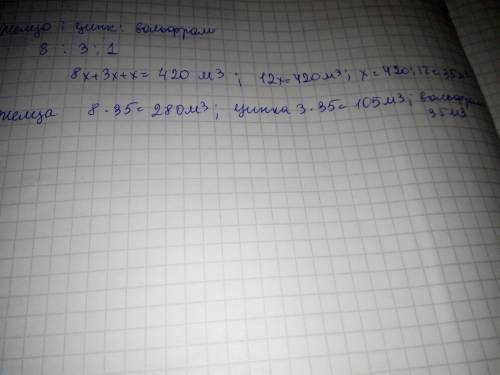 железо : цинк : вольфрам
8 : 3 : 1
8x+3x+x= 420 м3 ; 12x=420м3 ; x=420:12=35м3
железа 8·35=280м3 ; цинка 3·35=105м3 ; вольфрам
35м3